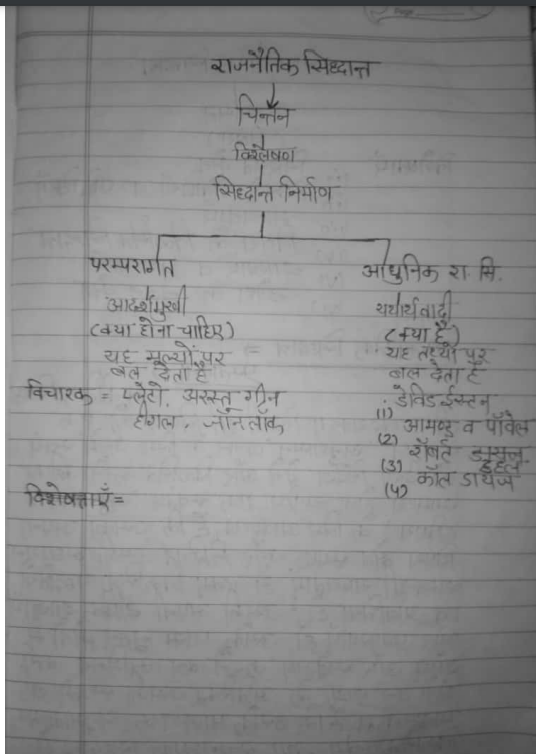 राजनैतिक सिध्दान्त
चिन्तन
विश्लेषण
सिध्दान्त निर्माण
परम्परागत
आदर्शमुखी
(क्या होना चाहिए)
यह मूल्यों पर
बल देता है
विचारक = प्लेटो, अरस्तू ग्रीन
हीगल, जॉन लॉक
आधुनिक रा. सि.
यथार्थवादी
(क्या है)
यह तथ्यों पर
बल देता है
(1) डेविड ईस्टन
(2) आमण्ड व पॉवेल
(3) रॉबर्ट डहल
(4) कॉल डायज
विशेषताएँ =